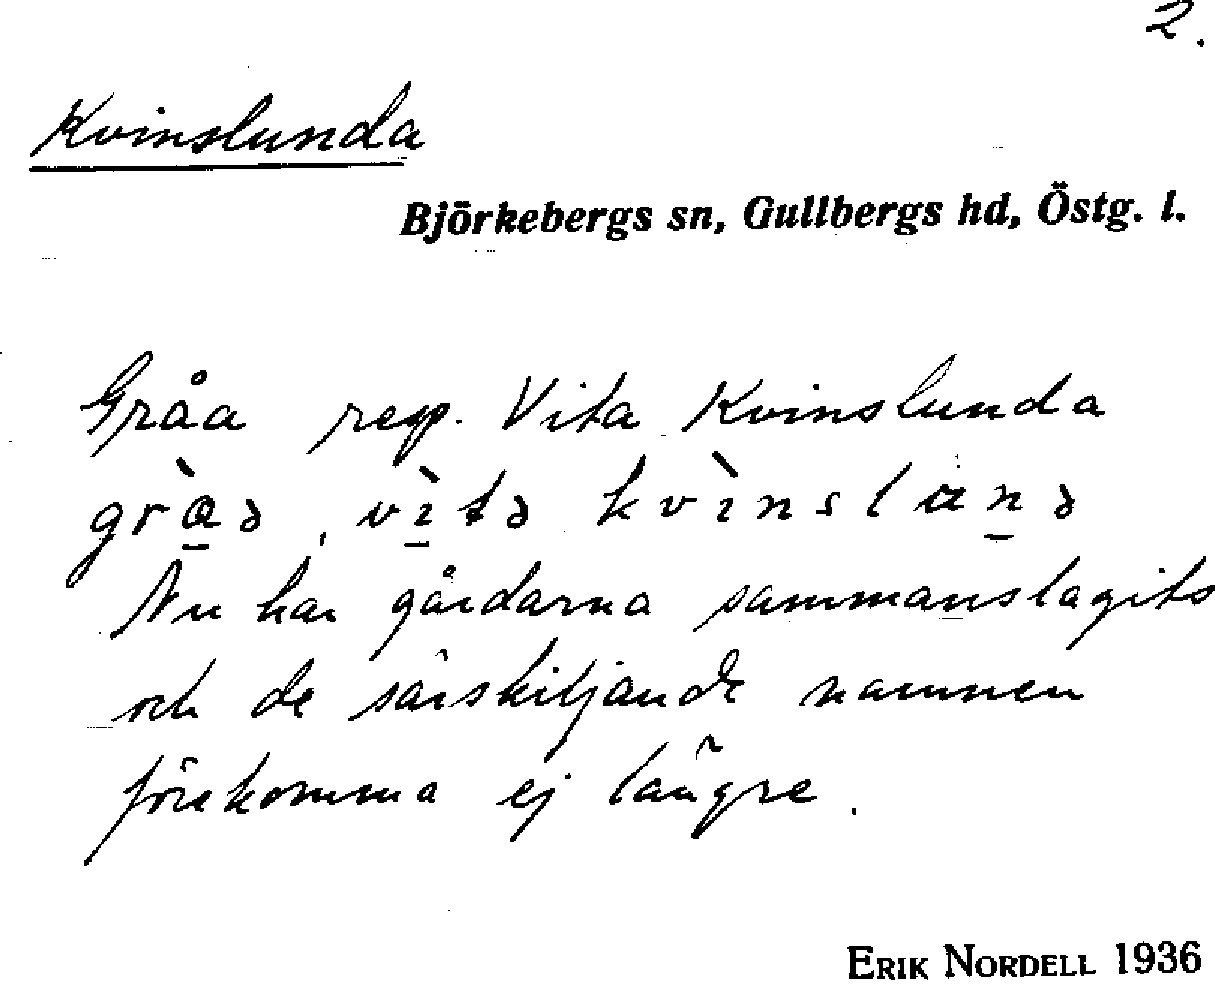 2.
Kvinslunda
Björkebergs sn, Gullbergs hd, Östg. l.
Gråa resp. Vita Kvinslunda
gràə, vìtə kvìnslunə
Nu har gårdarna sammanslagits
och de särskiljande namnen
förekomma ej längre.
ERIK NORDELL 1936